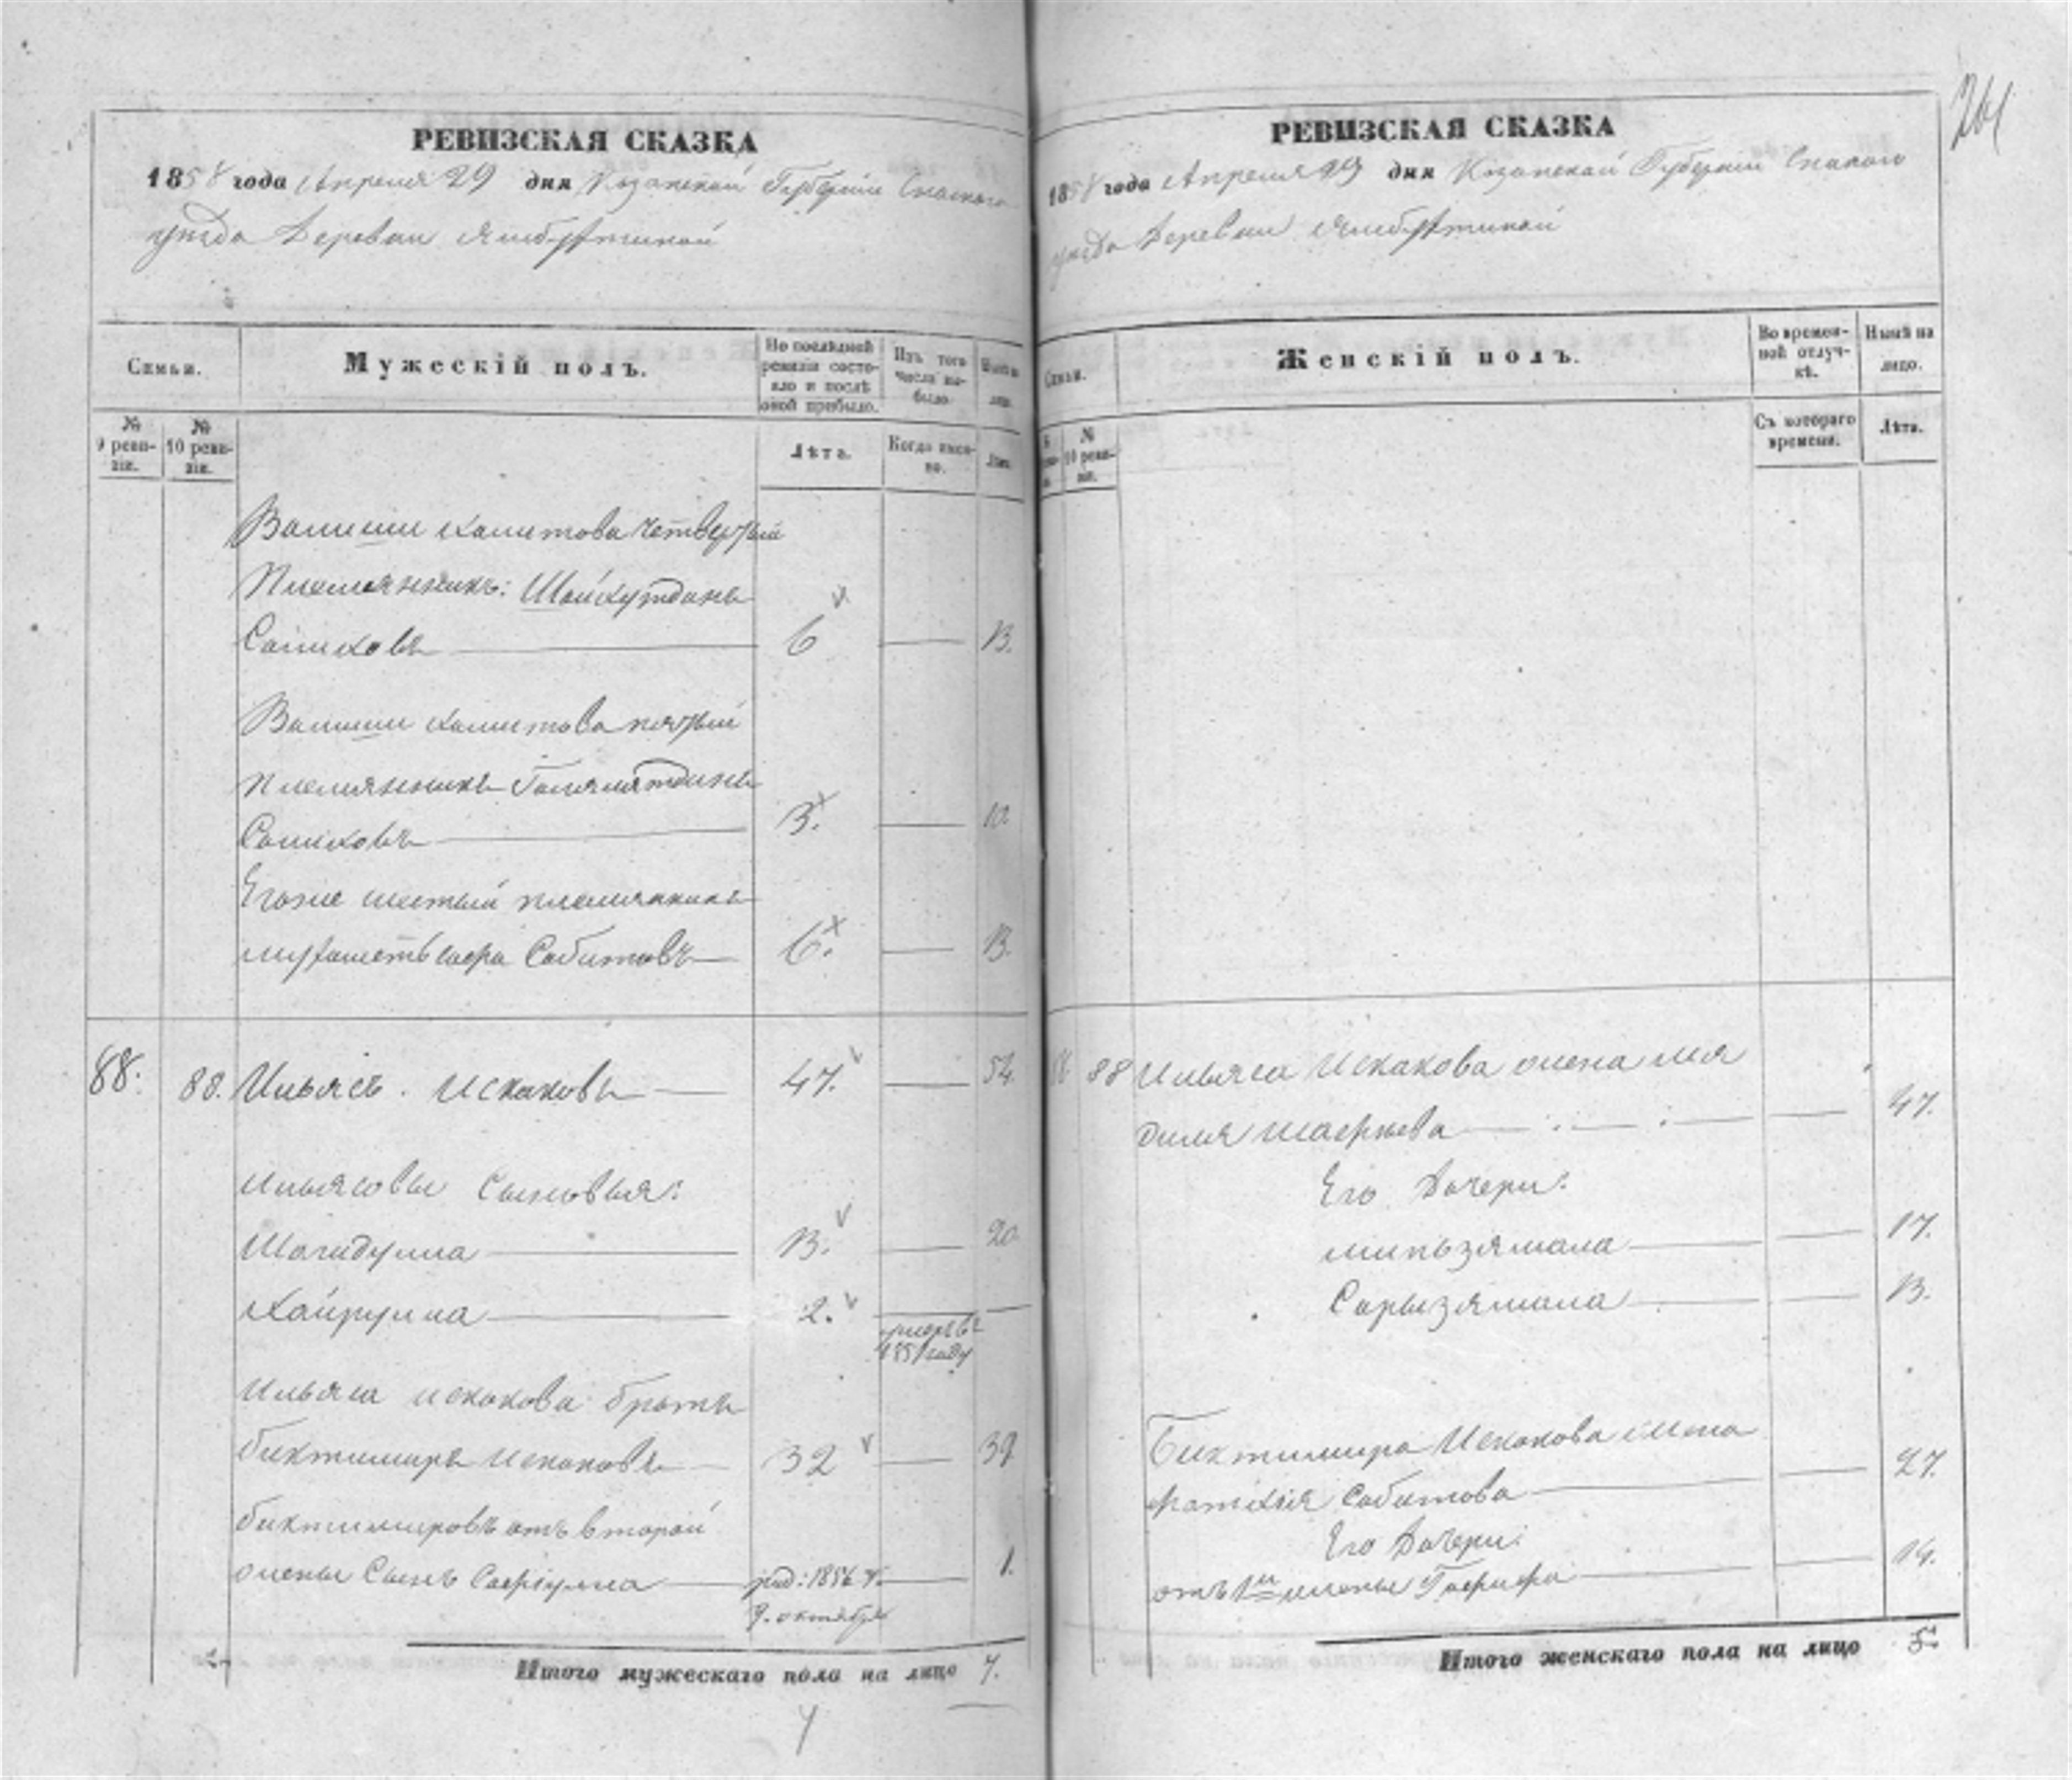 261
РЕВИЗСКАЯ СКАЗКА
1858 года Апреля 29 дня Казанской Губернии Спаского
уезда Деревни Ямбухтиной
Семьи.
Мужескій полъ.
По послѣдней ревизіи состояло и послѣ оной прибыло.
Изъ того числа выбыло.
Нынѣ на лицо.
№ 9 ревизіи.
№ 10 ревизіи.
Лѣта.
Когда именно.
Лѣта.
Валиши Хамитова четвертый
Племянникъ: Шайхутдинъ
Салиховъ 6 — 13.
Валиши Хамитова пятый
Племянникъ Галялятдинъ
Салиховъ 3. — 10
Егоже шестый племянникъ
Мухаметьсафа Сабитовъ 6. — 13.
88. 88. Ильясъ Искаковъ 47. — 54.
Ильясовы Сыновья:
Шагидулла 13. — 20
Хайрулла 2. умеръ въ 1851 году —
Ильяса Искакова братъ
Биктимиръ Искаковъ 32 — 39
Биктимировъ отъ второй
жены Сынъ Сафіулла род: 1856 г. 9. октября — 1.
Итого мужескаго пола на лицо 7.
РЕВИЗСКАЯ СКАЗКА
1858 года Апреля 29 дня Казанской Губернии Спаского
уезда Деревни Ямбухтиной
Семьи.
Женскій полъ.
Во временной отлучкѣ.
Нынѣ на лицо.
№ 10 ревизіи.
Съ котораго времени.
Лѣта.
88 Ильяса Искакова жена
47.
Его Дочери:
Миньзямала — 17.
Сарызямала — 13.
Биктимира Искакова жена
Сабитова — 27.
Его Дочери:
отъ 1й жены Гафифа — 14.
Итого женскаго пола на лицо 5.